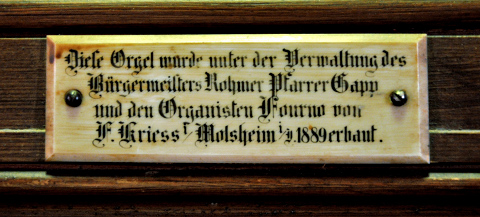 Diese Orgel wurde unter der Verwaltung des
Bürgermeisters Rohmer Pfarrer Gapp
und den Organisten Fourno von
F. Kriess i/ Molsheim i/J. 1889 erbaut.